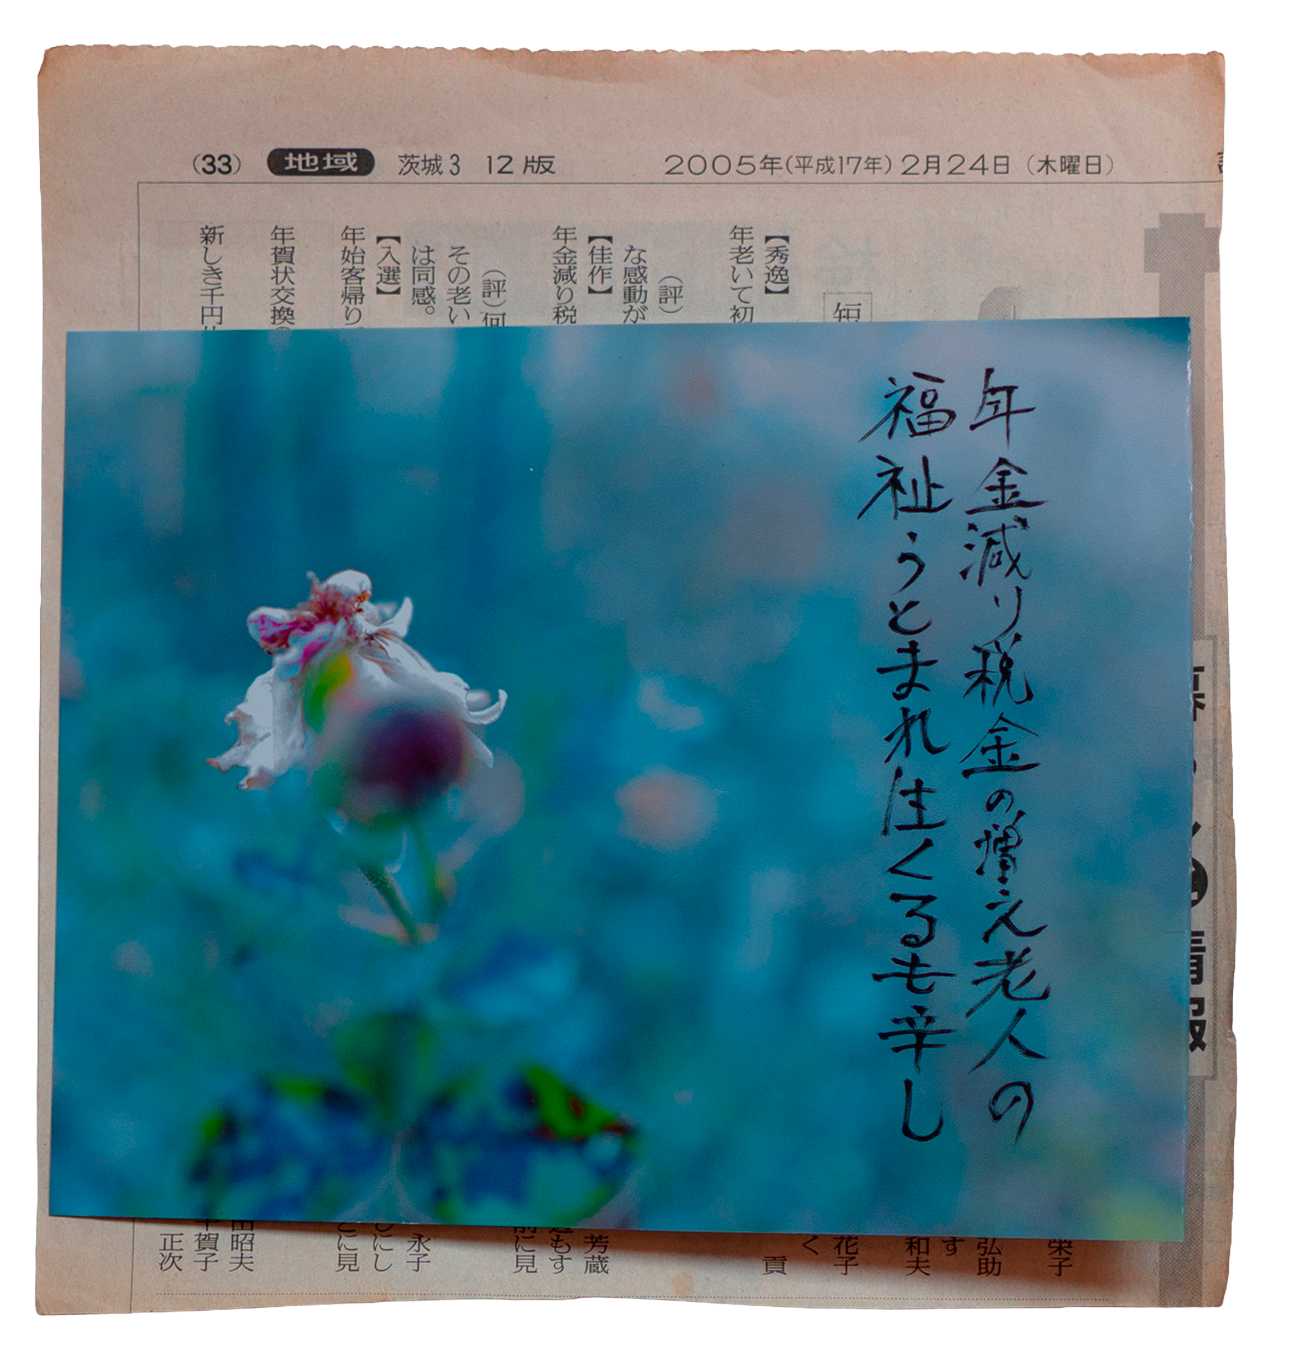 (33) 地域 茨城3 12版 2005年(平成17年)2月24日(木曜日)
短
【秀逸】
年老いて初
(評)
な感動が
【佳作】
年金減り税
(評)何
その老い
は同感。
【入選】
年始客帰り
年賀状交換
新しき千円
年金減り税金の増え老人の
福祉うとまれ生くるも辛し
情報
栄子
弘助
す
和夫
く
花子
貢
芳蔵
もす
前に見
永子
にし
に見
田昭夫
賀子
正次